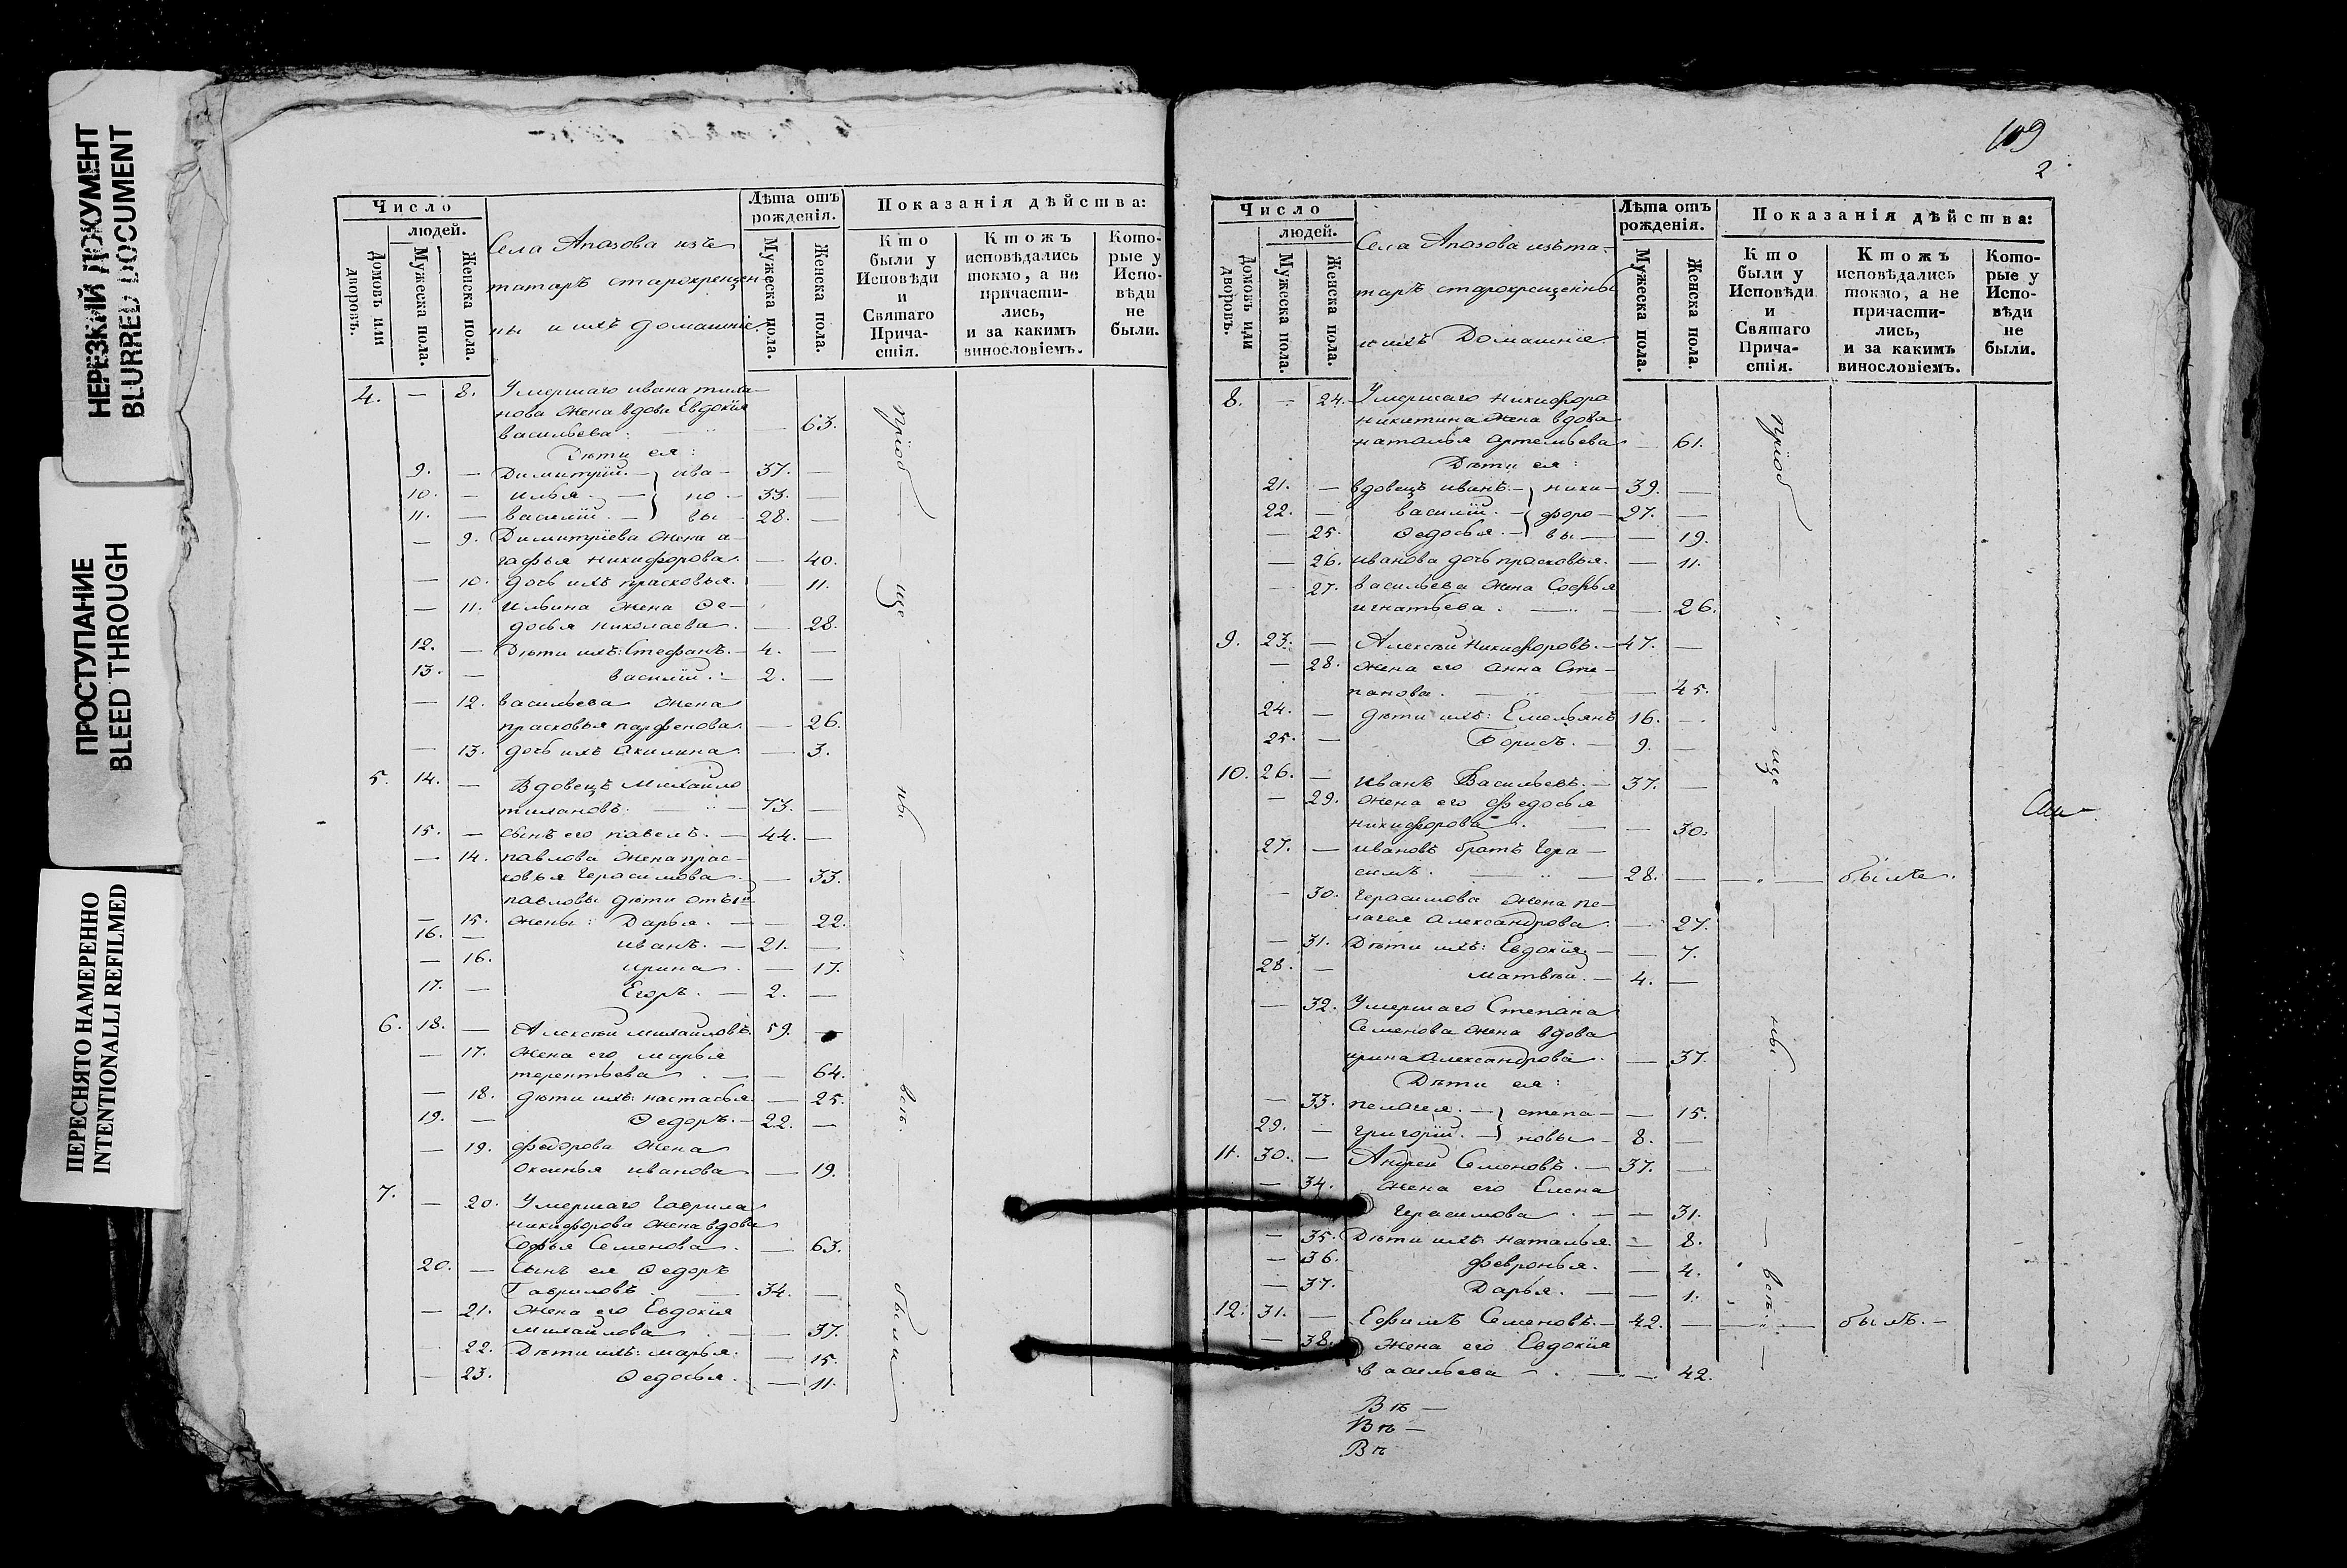 НЕРЕЗКИЙ ДОКУМЕНТ
BLURRED DOCUMENT
ПРОСТУПАНИЕ
BLEED THROUGH
ПЕРЕСНЯТО НАМЕРЕННО
INTENTIONALLI REFILMED
Число
людей.
Домовъ или дворовъ.
Мужеска пола.
Женска пола.
Села Апазова изъ
татаръ старокрещен
ны и ихъ домашніе
Лѣта отъ рожденія.
Мужеска пола.
Женска пола.
Показанія дѣйства:
Кто были у Исповѣди и Святаго Причастія.
Ктожъ исповѣдались токмо, а не причастились, и за какимъ винословіемъ.
Которые у Исповѣди не были.
4. — 8. Умершаго ивана тила-
нова жена вдова Евдокия
васильева: — — 63.
Дѣти ея:
9. — Димитрій. — ива — 37. —
10. — илья. — но — 33. —
11. — василій. — вы — 28. —
— 9. Димитріева жена а-
гафья никифорова. — 40.
— 10. дочь ихъ прасковья. — 11.
— 11. ильина жена Ѳе-
досья николаева. — 28.
12. — Дѣти ихъ: Стефанъ. — 4. —
13. — василій. — 2. —
— 12. васильева жена
прасковья парфенова. — 26.
— 13. дочь ихъ акилина — 3.
5. 14. — Вдовецъ Михайло
тилановъ. — 73. —
15. — сынъ его павелъ. — 44. —
— 14. павлова жена прас-
ковья Герасимова — 33.
павловы дѣти отъ 1й
— 15. жены: Дарья. — — 22.
16. — иванъ. — 21. —
— 16. ирина. — 17.
17. — Егоръ. — 2. —
6. 18. — Алексѣй михайловъ. 59. —
— 17. жена его марья
терентьева. — — 64.
— 18. дѣти ихъ: настасья. — 25.
19. — Ѳедоръ. — 22. —
— 19. федорова жена
Оксинья иванова — 19.
7. — 20. Умершаго Гаврила
никифорова жена вдова
Софья Семенова. — 63.
20. — сынъ ея Ѳедоръ
Гавриловъ. — 34. —
— 21. жена его Евдокия
михайлова. — — 37.
— 22. Дѣти ихъ: марья. — 15.
— 23. Ѳедосья. — 11.
пріоб — ще — ны — " — всѣ. — были.
109
2
Число
людей.
Домовъ или дворовъ.
Мужеска пола.
Женска пола.
Села Апазова изъ та-
таръ старокрещенны
и ихъ Домашніе
Лѣта отъ рожденія.
Мужеска пола.
Женска пола.
Показанія дѣйства:
Кто были у Исповѣди и Святаго Причастія.
Ктожъ исповѣдались токмо, а не причастились, и за какимъ винословіемъ.
Которые у Исповѣди не были.
8. — 24. Умершаго никифора
никитина жена вдова
наталья артемьева — 61.
Дѣти ея:
21. — вдовецъ иванъ. — ники — 39. —
22. — василій. — форо — 27. —
— 25. Ѳедосья. — вы — — 19.
— 26. иванова дочь прасковья. — 11.
— 27. васильева жена Софья
игнатьева. — — 26.
9. 23. — Алексѣй Никифоровъ. — 47. —
— 28. жена его анна Сте-
панова. — — 45.
24. — дѣти ихъ: Емельянъ 16. —
25. — Борисъ. — 9. —
10. 26. — иванъ Васильевъ. — 37. —
— 29. жена его федосья
никифорова. — — 30.
27. — ивановъ братъ Гера-
симъ. — 28. — — были.
— 30. Герасимова жена пе-
лагея александрова. — 27.
— 31. Дѣти ихъ: Евдокия. — — 7.
28. — матвѣй. — 4. —
— 32. Умершаго Степана
Семенова жена вдова
ирина александрова. — 37.
Дѣти ея:
— 33. пелагея. — степа — — 15.
29. — григорій. — новы — 8. —
11. 30. — Андрей Семеновъ. — 37. —
— 34. жена его Елена
Герасимова. — — 31.
— 35. Дѣти ихъ: наталья. — 8.
— 36. февронья. — 4.
— 37. Дарья. — — 1.
12. 31. — Ефимъ Семеновъ. — 42. — — былъ. —
— 38. жена его Евдокия
васильева. — — 42.
пріоб — " — ще — ны. — " — всѣ. —
Вѣ —
Вѣ —
Вѣ